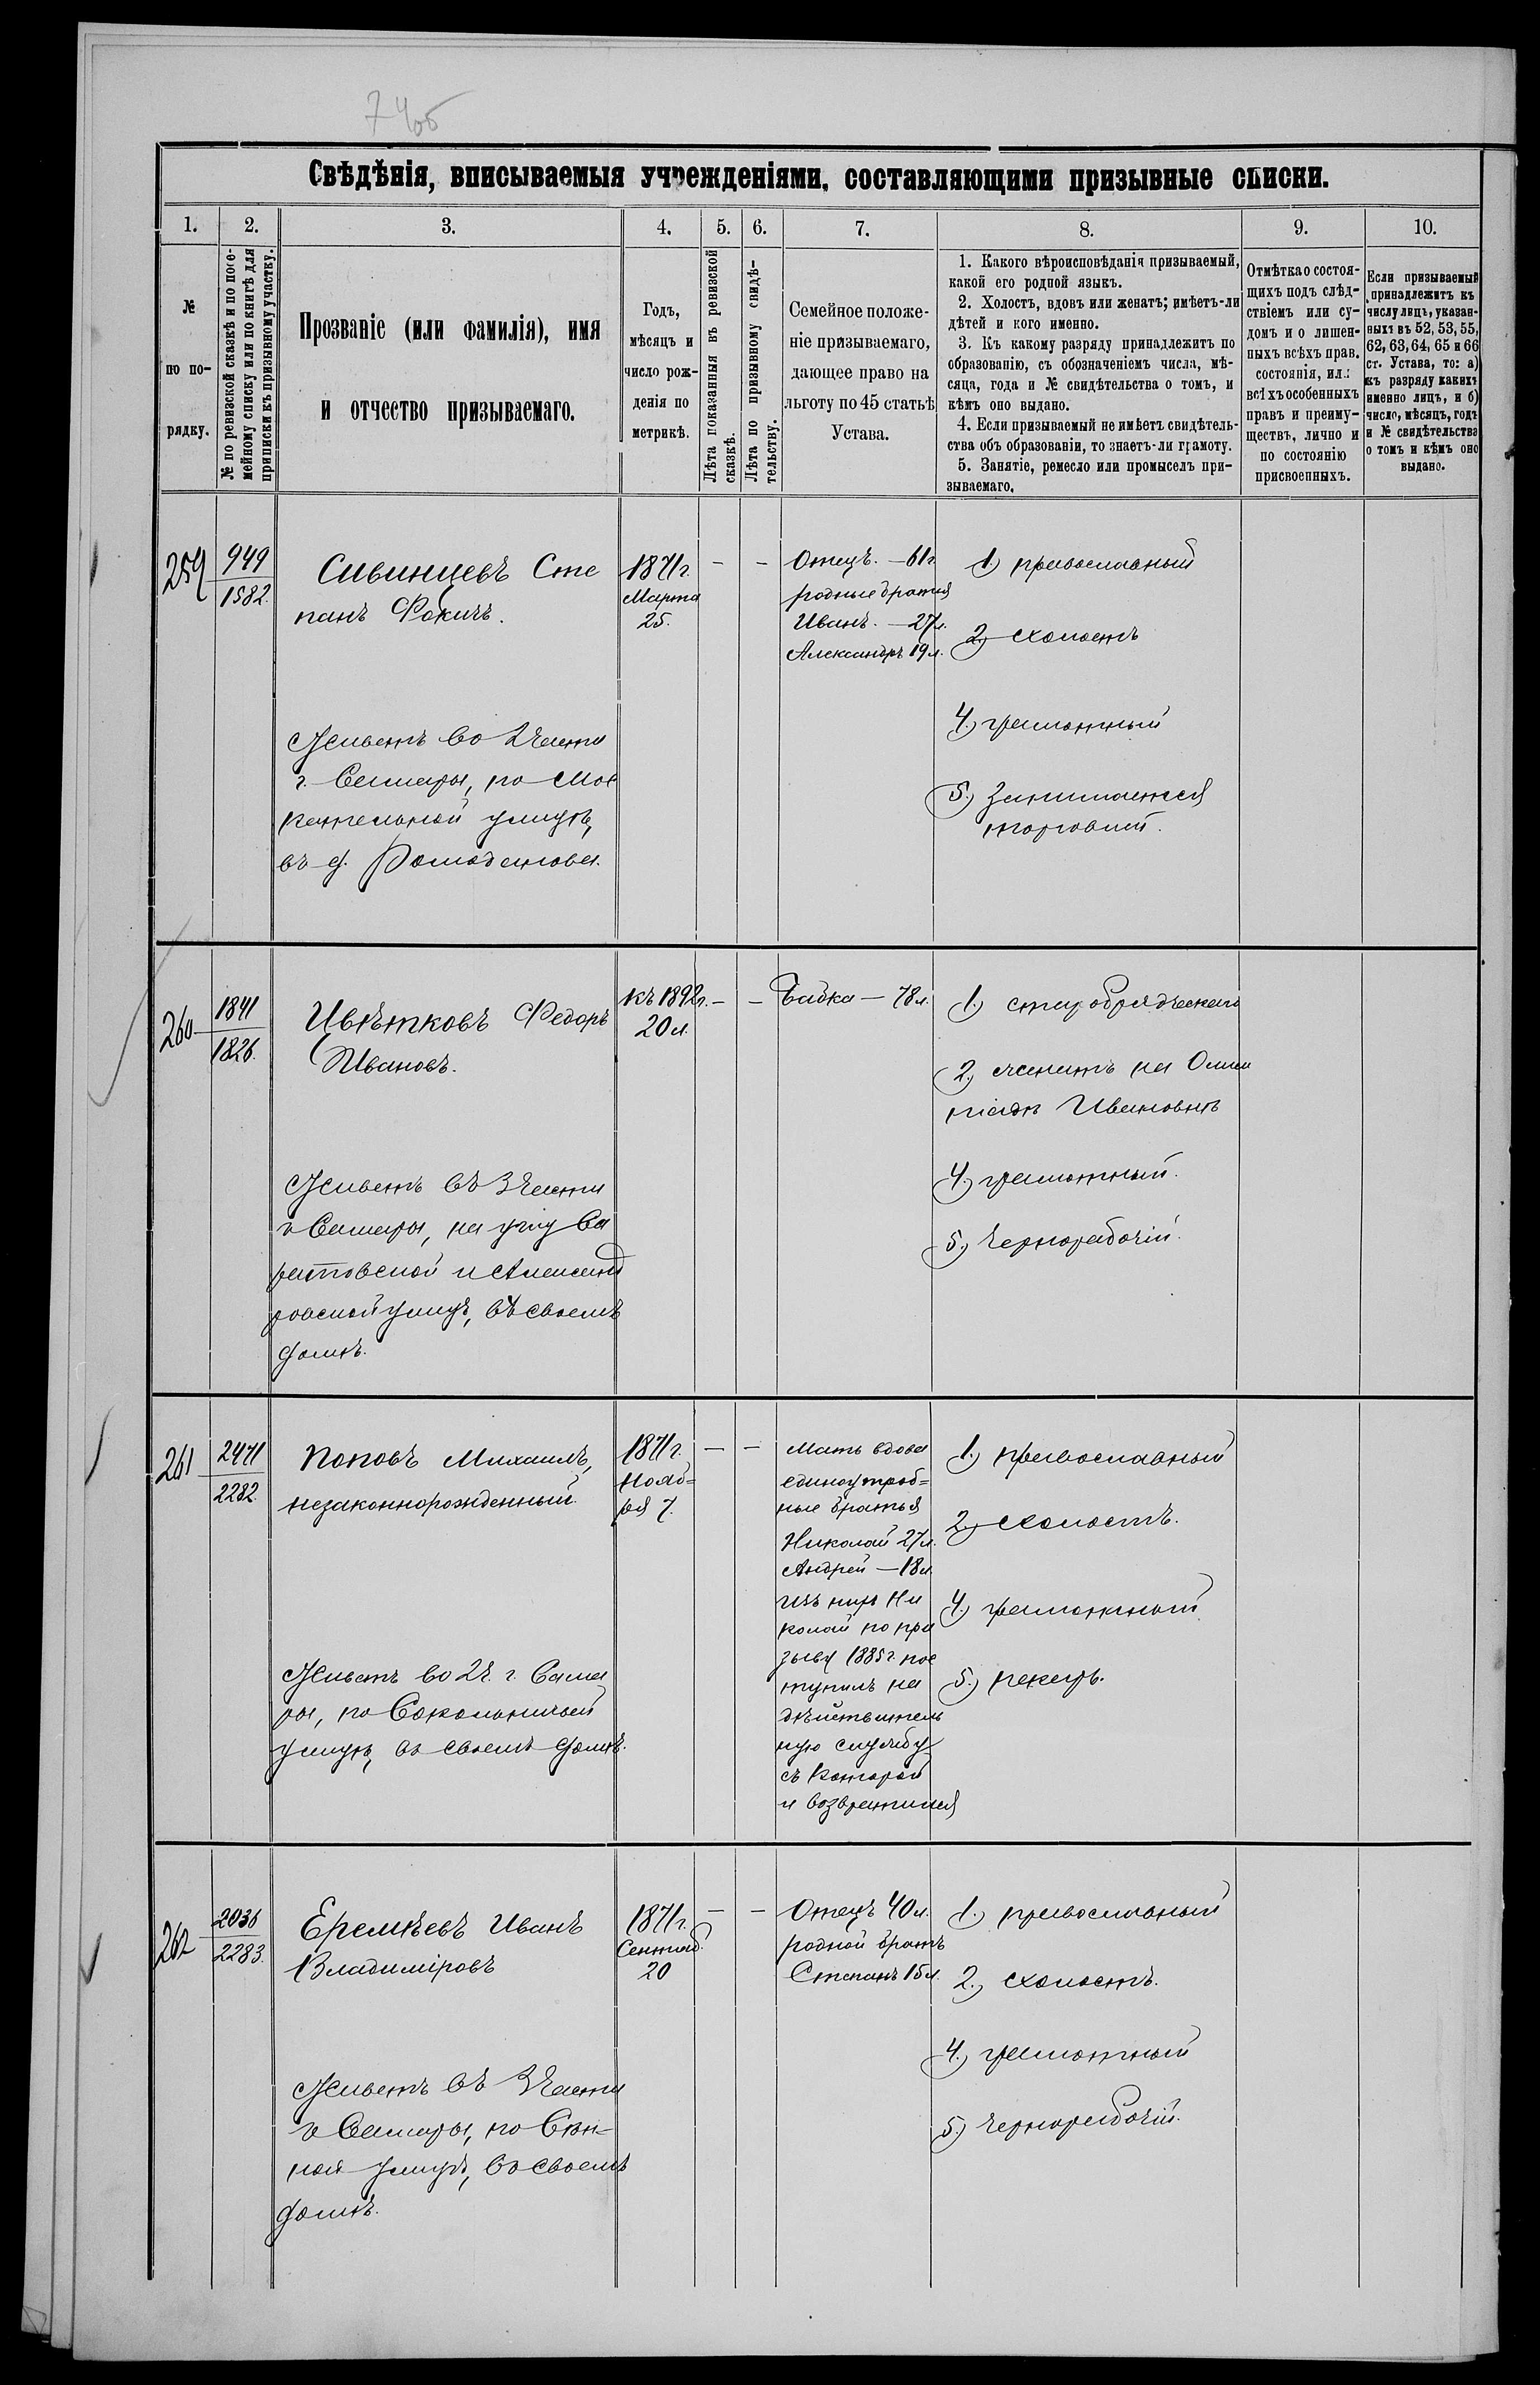 74об
Свѣдѣнія, вписываемыя учрежденіями, составляющими призывные списки.
1.
2.
3.
4.
5.
6.
7.
8.
9.
10.
№
по по-
рядку.
№ по ревизской сказкѣ и по посе-
мейному списку или по книгѣ для
приписки къ призывному участку.
Прозваніе (или фамилія), имя
и отчество призываемаго.
Годъ,
мѣсяцъ и
число рож-
денія по
метрикѣ.
Лѣта показанныя въ ревизской
сказкѣ.
Лѣта по призывному свидѣ-
тельству.
Семейное положе-
ніе призываемаго,
дающее право на
льготу по 45 статьѣ
Устава.
1. Какого вѣроисповѣданія призываемый,
какой его родной языкъ.
2. Холостъ, вдовъ или женатъ; имѣетъ-ли
дѣтей и кого именно.
3. Къ какому разряду принадлежитъ по
образованію, съ обозначеніемъ числа, мѣ-
сяца, года и № свидѣтельства о томъ, и
кѣмъ оно выдано.
4. Если призываемый не имѣетъ свидѣтель-
ства объ образованіи, то знаетъ-ли грамоту.
5. Занятіе, ремесло или промыселъ при-
зываемаго.
Отмѣтка о состоя-
щихъ подъ слѣд-
ствіемъ или су-
домъ и о лишен-
ныхъ всѣхъ прав.
состоянія, или
всѣхъ особенныхъ
правъ и преиму-
ществъ, лично и
по состоянію
присвоенныхъ.
Если призываемый
принадлежитъ къ
числу лицъ, указан-
ныхъ въ 52, 53, 55,
62, 63, 64, 65 и 66
ст. Устава, то: а)
къ разряду какихъ
именно лицъ, и б)
число, мѣсяцъ, годъ
и № свидѣтельства
о томъ и кѣмъ оно
выдано.
259
949
1582.
Сивинцевъ Сте
панъ Фокичъ.
Живетъ во 2 части
г. Самары, по Мос
кательной улицѣ,
въ д. Ромаданова.
1871 г.
Марта
25.
—
—
Отецъ. — 61 г.
родные братья
Иванъ. — 27 л.
Александръ 19 л.
1.) православный
2.) холостъ
4.) грамотный
5.) Занимается
торговлей.
260
1841
1826.
Цвѣтковъ Федоръ
Ивановъ.
Живетъ въ 3 части
г. Самары, на углу Са
ратовской и Александ
ровской улицъ, въ своемъ
домѣ.
къ 1892 г.
20 л.
—
—
Бабка — 78 л.
1.) старобрядческаго
2.) женатъ на Олим
піадѣ Ивановнѣ
4.) грамотный.
5.) Чернорабочій.
261
2471
2282.
Поповъ Михаилъ,
незаконнорожденный.
Живетъ во 2 ч. г. Сама
ры, по Сокольничьей
улицѣ, въ своемъ домѣ.
1871 г.
Нояб=
ря 7.
—
—
Мать вдова
единоутроб=
ные братья
Николай 27 л.
Андрей — 18 л.
изъ нихъ Ни
колай по при
зыву 1885 г. пос
тупилъ на
дѣйствитель
ную службу
съ которой
и возвратился
1.) православный
2.) холостъ.
4.) грамотный
5.) пекарь.
262
2036
2283.
Еремѣевъ Иванъ
Владиміровъ
Живетъ въ 3 части
г. Самары, по Сѣн=
ной улицѣ, въ своемъ
домѣ.
1871 г.
Сентяб.
20
—
—
Отецъ 40 л.
родной братъ
Степанъ 15 л.
1.) православный
2.) холостъ.
4.) грамотный
5.) Чернорабочій.